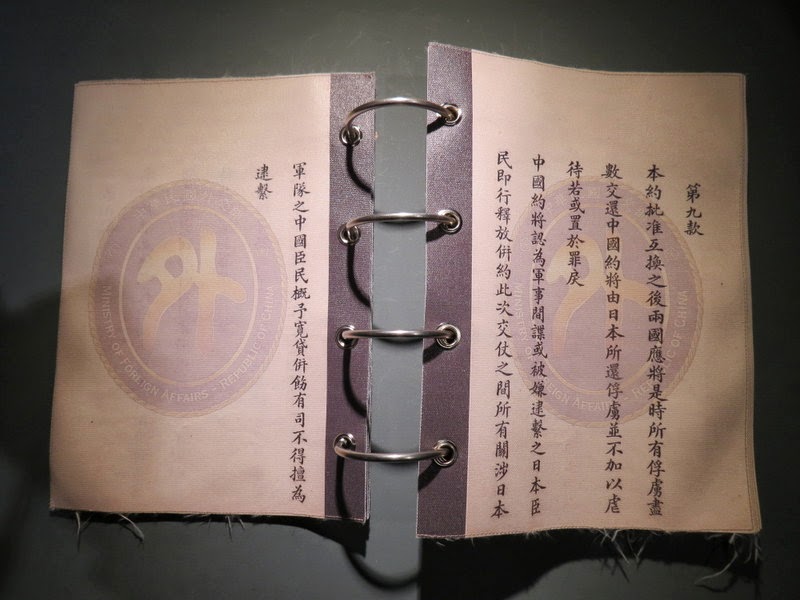 第九款
本約批准互換之後兩國應將是時所有俘虜盡
數交還中國約將由日本所還俘虜並不加以虐
待若或置於罪戾
中國約將認為軍事間諜或被嫌逮繫之日本臣
民即行釋放併約此次交仗之間所有關涉日本
軍隊之中國臣民概予寬貸併飭有司不得擅為
逮繫
MINISTRY OF FOREIGN AFFAIRS - REPUBLIC OF CHINA
MINISTRY OF FOREIGN AFFAIRS - REPUBLIC OF